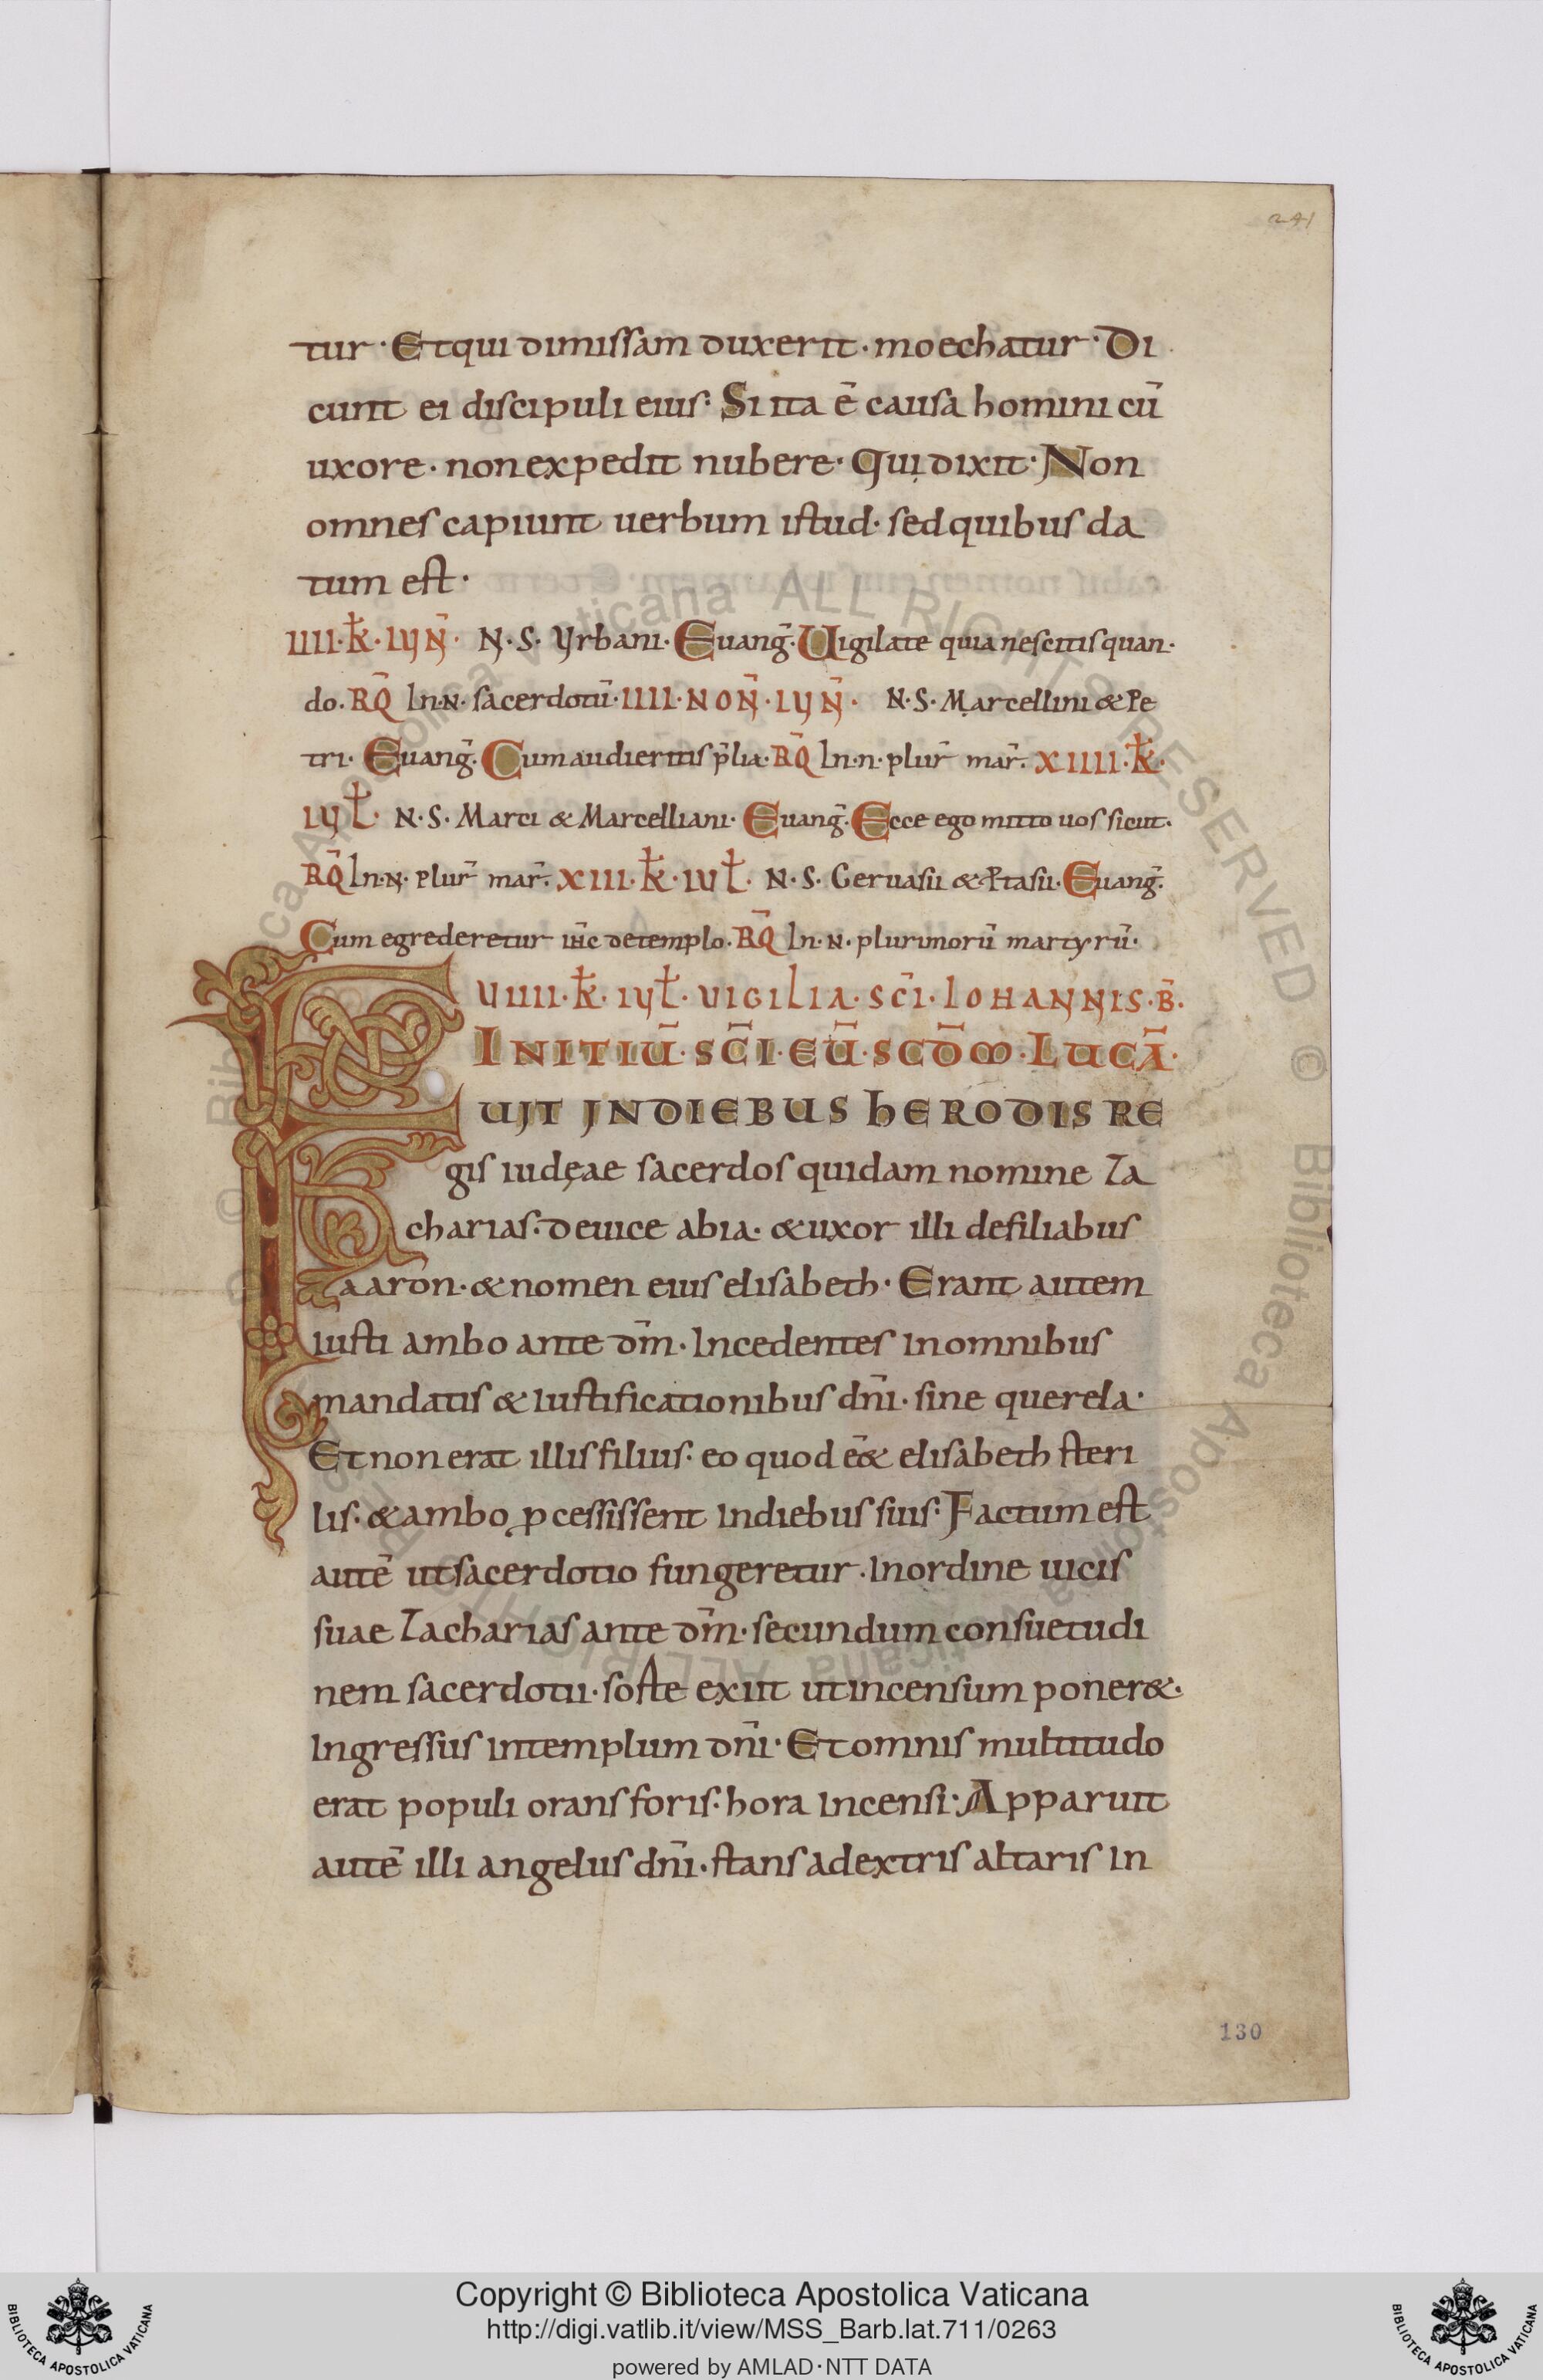 241
tur · Et qui dimissam duxerit · moechatur · Di
cunt ei discipuli eius : Si ita ē causa homini cū
uxore · non expedit nubere · Qui dixit · Non
omnes capiunt uerbum istud · sed quibus da
tum est ·
IIII · k̄ · IUN̄ · N · S · Urbani · Euang̅ · Uigilate quia nescitis quan ·
do . RQ̄ ln · N · sacerdotū · IIII · NON̄ · IUN̄ · N · S · Marcellini & Pe
tri · Euang̅ · Cum audieritis p̄lia · RQ̄ ln · n · plur̄ mar̄ · XIIII · k̄ ·
IUL̄ · N · S · Marci & Marcelliani · Euang̅ · Ecce ego mitto uos sicut ·
RQ̄ ln · N · plur̄ mar̄ · XIII · k̄ · IUL̄ · N · S · Geruasii & Ptasii · Euang̅ ·
Cum egrederetur ih̄c de templo · RQ̄ ln · N · plurimorū martyrū ·
UIIII · k̄ · IUL̄ · UIGILIA · SC̄I · IOHANNIS · B̄ ·
INITIŪ · SC̄I · EŪ · SCD̄M · LUCĀ ·
FUIT IN DIEBUS HERODIS RE
gis iudęae sacerdos quidam nomine Za
charias · de uice abia · & uxor illi de filiabus
aaron · & nomen eius elisabeth · Erant autem
iusti ambo ante dm̄ · Incedentes in omnibus
mandatis & iustificationibus dn̄i · sine querela ·
Et non erat illis filius · eo quod eē& elisabeth steri
lis · & ambo pcessissent in diebus suis : Factum est
autē ut sacerdotio fungeretur · In ordine uicis
suae Zacharias ante dm̄ · secundum consuetudi
nem sacerdotii · sorte exiit ut incensum poner& ·
Ingressus in templum dn̄i · Et omnis multitudo
erat populi orans foris · hora incensi · Apparuit
autē illi angelus dn̄i · stans a dextris altaris in
130
Copyright © Biblioteca Apostolica Vaticana
http://digi.vatlib.it/view/MSS_Barb.lat.711/0263
powered by AMLAD·NTT DATA
BIBLIOTECA APOSTOLICA VATICANA
BIBLIOTECA APOSTOLICA VATICANA